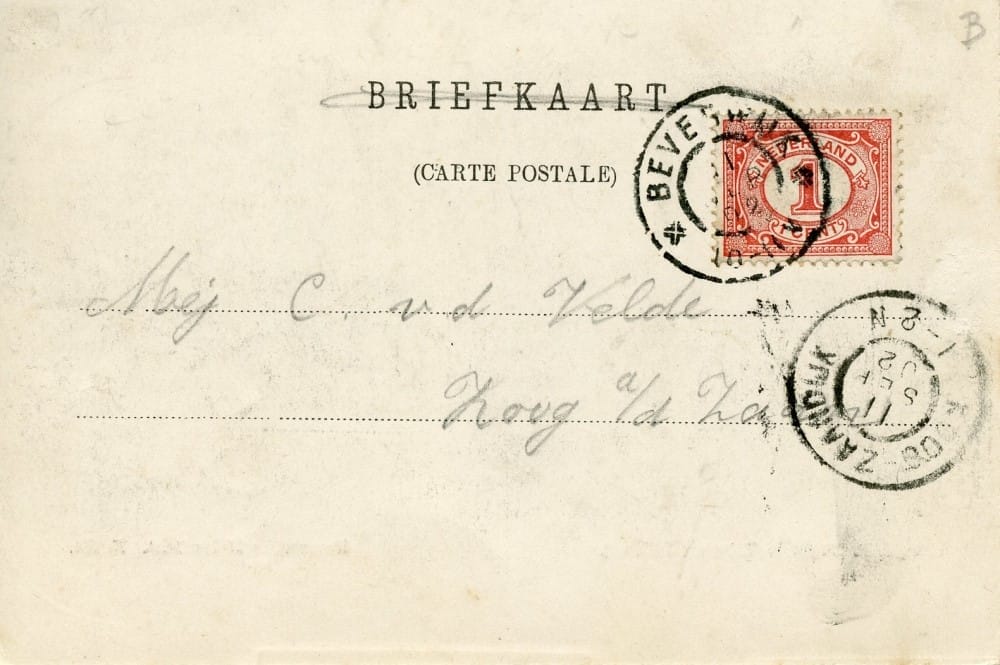 B
BRIEFKAART
(CARTE POSTALE)
NEDERLAND
1
CENT
Mej C. v d Velde
Koog a/d Zaan
ZAANDIJK
11 SEP
02
1-2 N